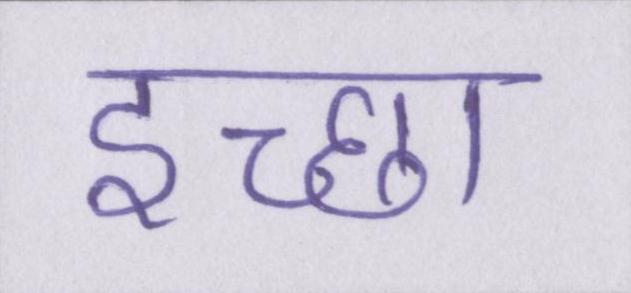 इच्छा